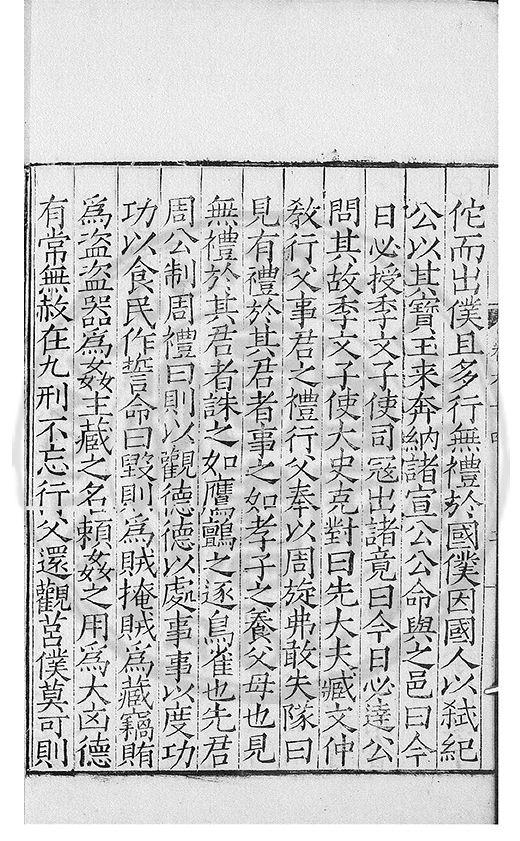 佗而出僕且多行無禮於國僕因國人以弑紀
公以其寶玉来奔納諸宣公公命與之邑曰今
日必授季文子使司冦出諸竟曰今日必達公
問其故季文子使大史克對曰先大夫臧文仲
敎行父事君之禮行父奉以周旋弗敢失隊曰
見有禮於其君者事之如孝子之養父母也見
無禮於其君者誅之如鷹鸇之逐鳥雀也先君
周公制周禮曰則以觀德德以處事事以度功
功以食民作誓命曰毀則爲賊掩賊爲藏竊賄
爲盗盗器爲姦主藏之名頼姦之用爲大凶德
有常無赦在九刑不忘行父還觀莒僕莫可則